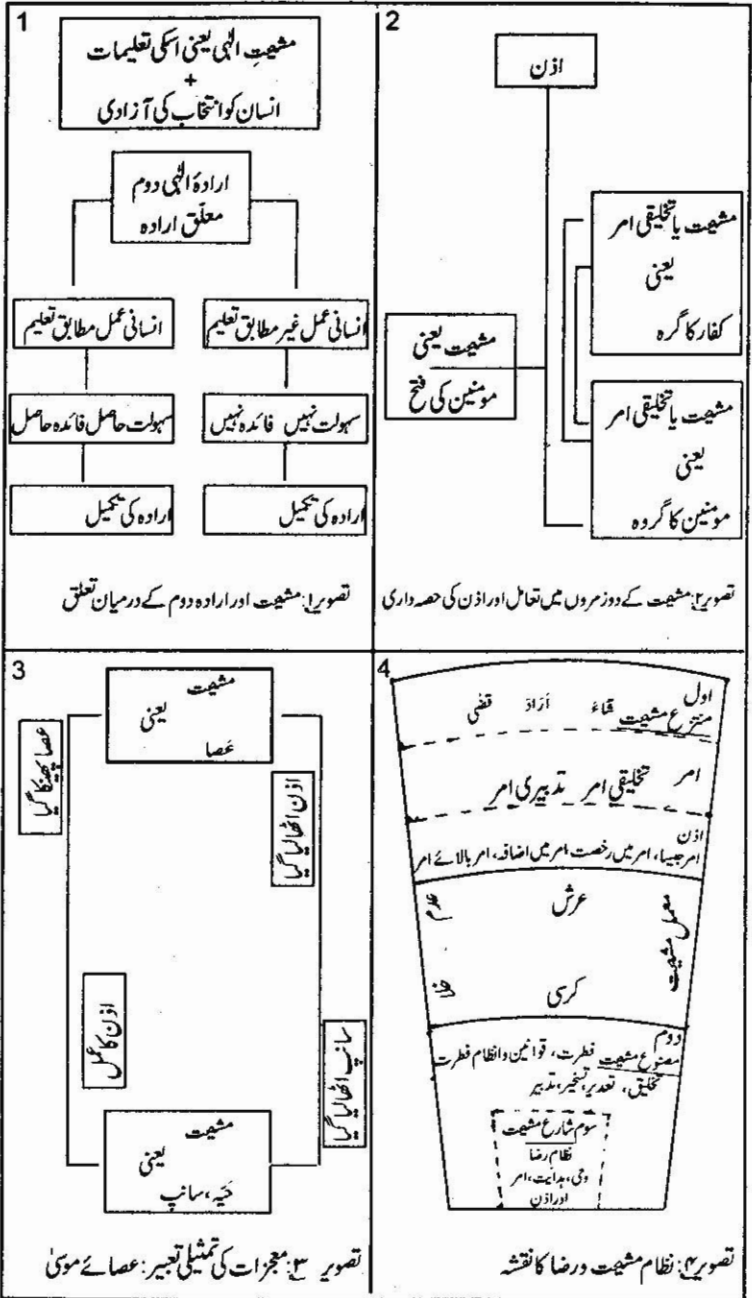 1
مشیعتِ الٰہی یعنی اسکی تعلیمات
+
انسان کو انتخاب کی آزادی
ارادۂ الٰہی دوم
معلّق ارادہ
انسانی عمل غیر مطابق تعلیم
انسانی عمل مطابق تعلیم
سہولت نہیں فائدہ نہیں
سہولت حاصل فائدہ حاصل
ارادہ کی تکمیل
ارادہ کی تکمیل
تصویر۱: مشیعت اور ارادہ دوم کے درمیان تعلق
2
اذن
مشیعت یا تخلیقی امر
یعنی
کفار کا گرہ
مشیعت یعنی
مومنین کی فتح
مشیعت یا تخلیقی امر
یعنی
مومنین کا گروہ
تصویر۲: مشیعت کے دو زمروں میں تعامل اور اذن کی حصہ داری
3
مشیعت
یعنی
عَصا
عصا پھینکا گیا
اذن اٹھا لیا گیا
اذن کا عمل
سانپ اٹھا لیا گیا
مشیعت
یعنی
حَیّہ، سانپ
تصویر ۳: معجزات کی تمثیلی تعبیر: عصائے موسیٰ
4
اول
منتزع مشیعت شاءَ اَرَادَ قضٰی
امر تخلیقی امر تدبیری امر
اذن
امر جیسا، امر میں رخصت، امر میں اضافہ، امر بالائے امر
معمل مشیعت
عرش
عدم
کرسی
خلا
دوم
مصنوع مشیعت فطرت، قوانین و انظام فطرت
تخلیق، تقدیر، تسخیر، تدبیر
سوم شارع مشیعت
نظام رضا
وحی، ہدایت، امر
اور اذن
تصویر۴: نظام مشیعت و رضا کا نقشہ